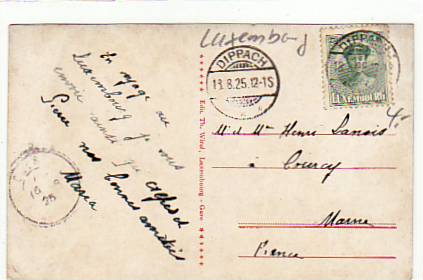 Luxembourg
DIPPACH
18.8.25.12-1S
DIPPACH
LUXEMBOURG
En voyage au
Luxembourg je vous
envoie ainsi qu'
Pierre
nos bonnes amitiés
Maria
Edit. Th. Wirol, Luxembourg - Gare
M. et Mme Henri
Courcy
Marne
France